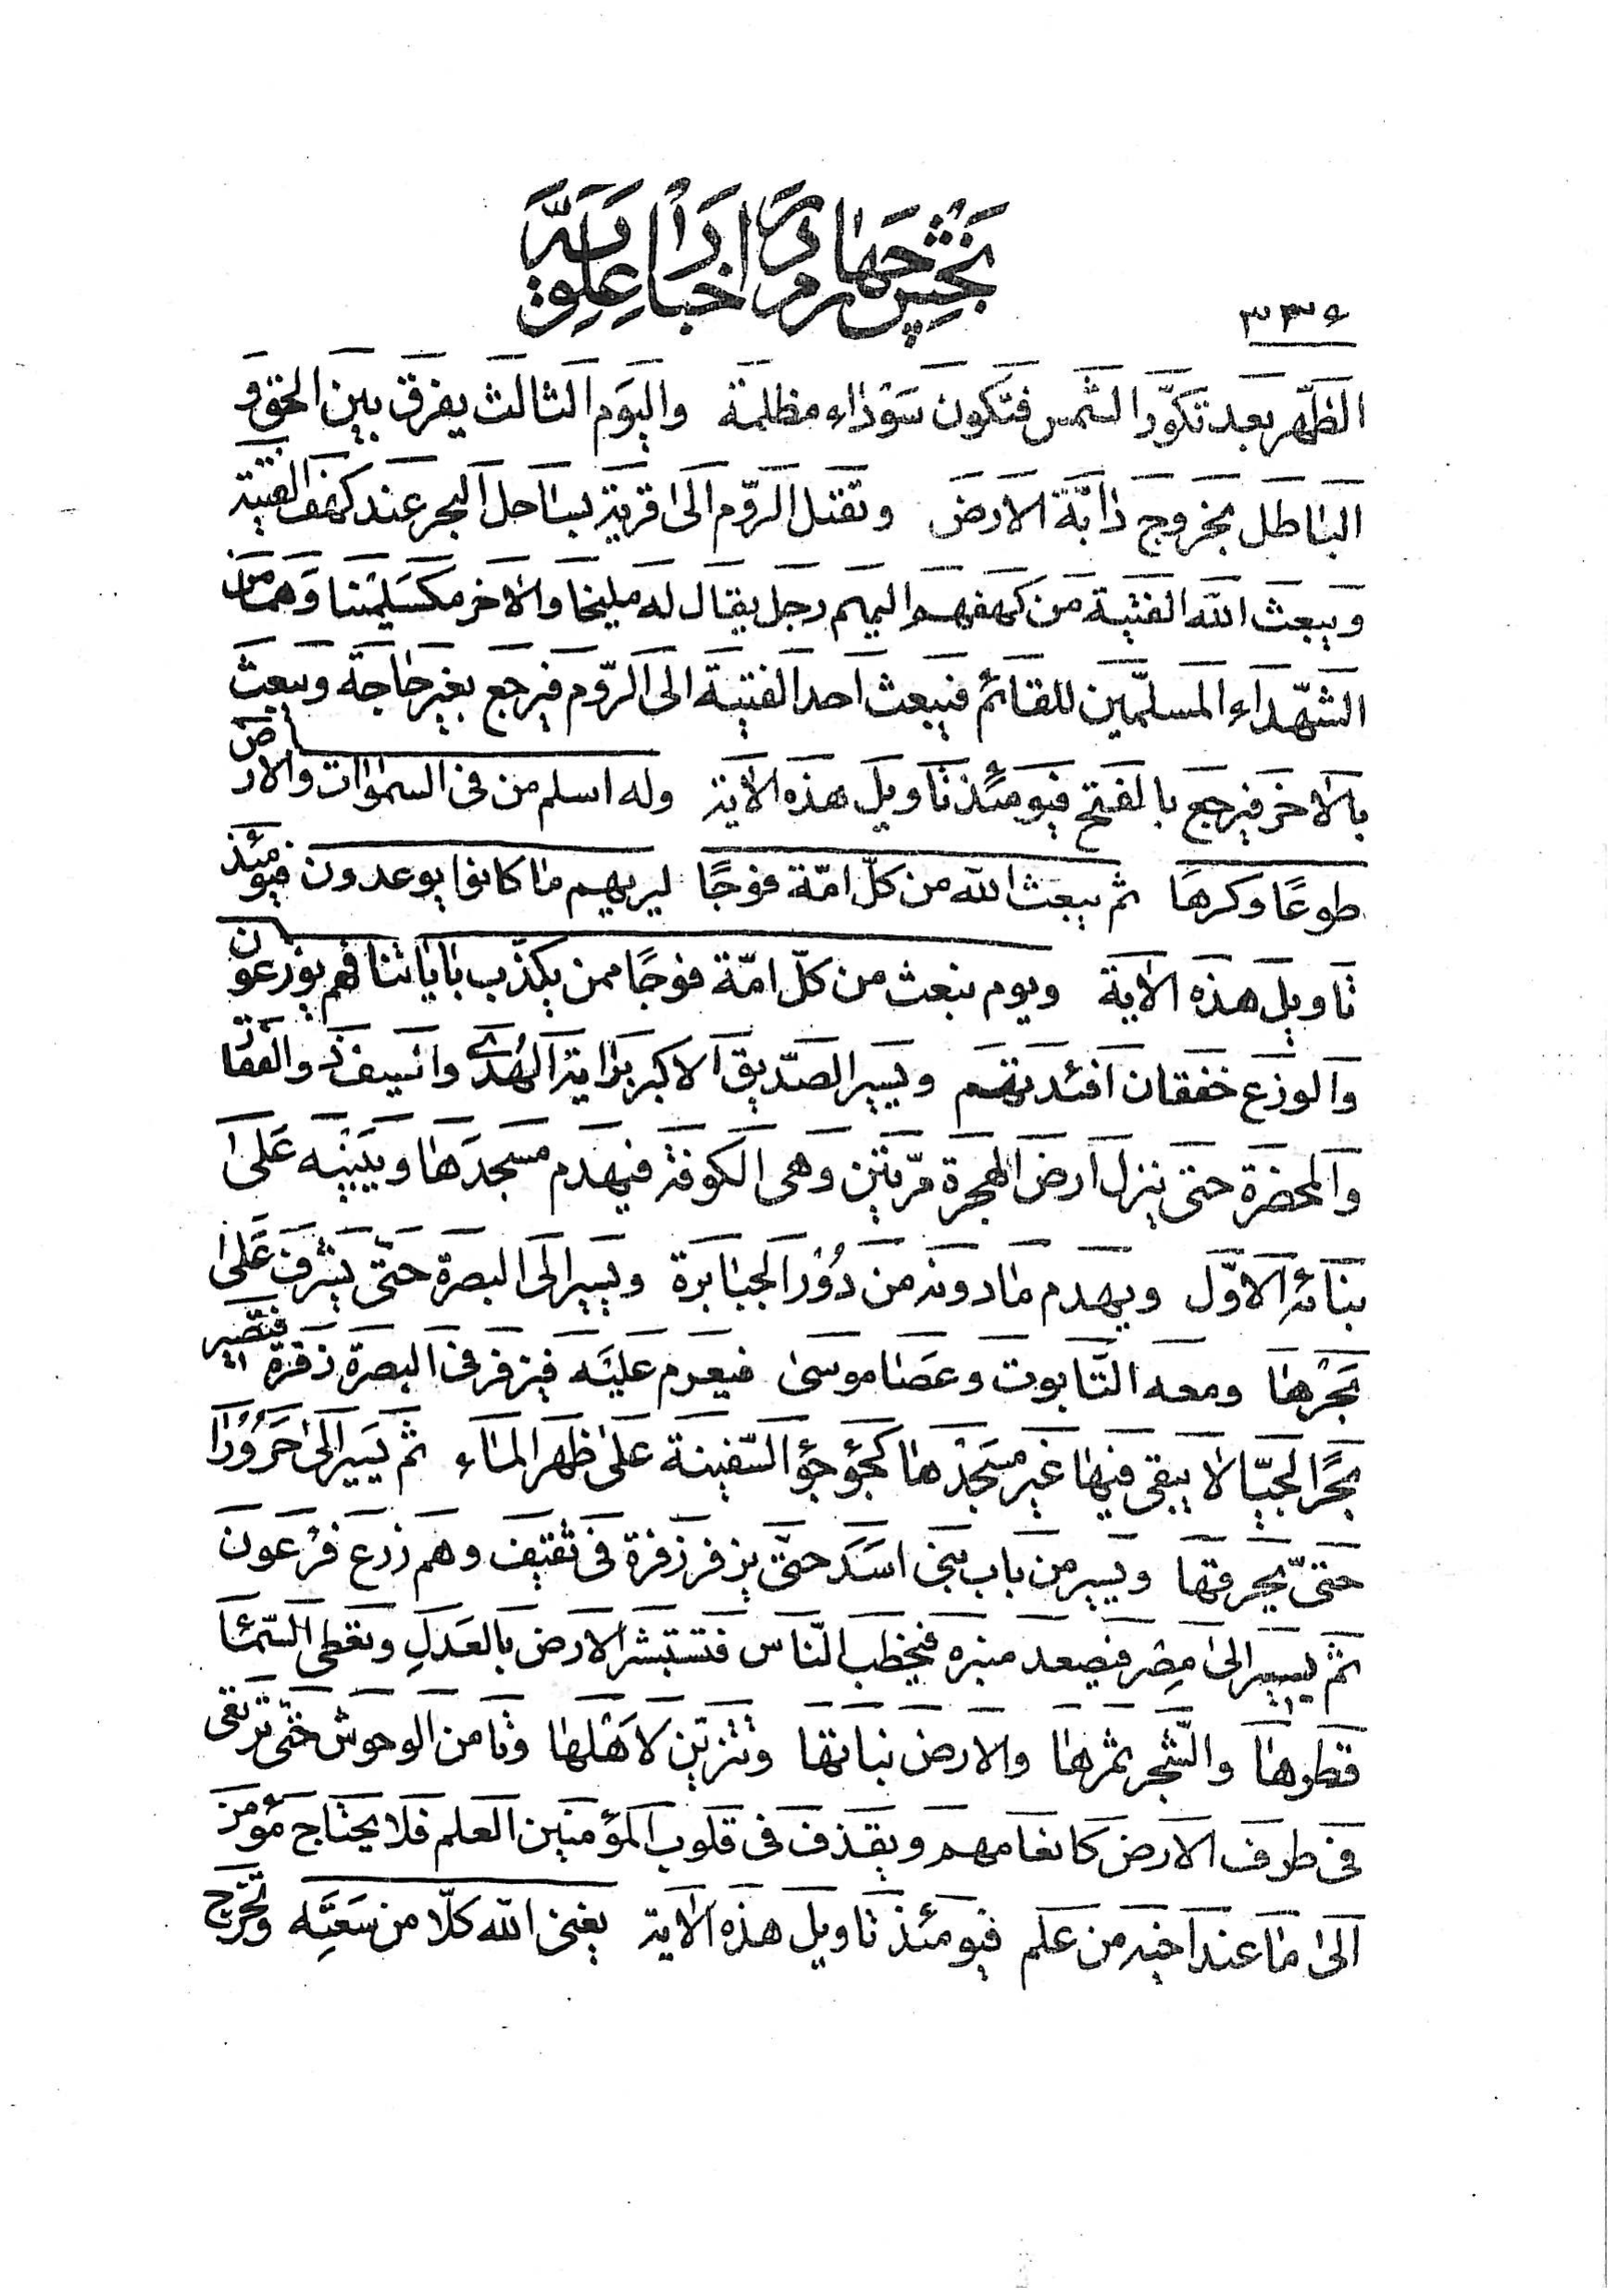 بخش چهارم در اخبار علويه
٣٣٤
الظهر بعد تكوّر الشمس فتكون سوداء مظلمة واليوم الثالث يفرق بين الحق و
الباطل بخروج دابّة الارض وتقتل الرّوم الى قرية بساحل البحر عند كهف الفتية
ويبعث الله الفتية من كهفهم اليهم رجل يقال له مليخا والاخر مكسلمينا وهما من
الشّهداء المسلّمين للقائم فيبعث احد الفتية الى الرّوم فيرجع بغير حاجة ويبعث
بالاخر فيرجع بالفتح فيومئذ تاويل هذه الاية وله اسلم من فى السموات والارض
طوعًا وكرها ثم يبعث الله من كلّ امّة فوجًا ليريهم ما كانوا يوعدون فيومئذ
تاويل هذه الاية ويوم نبعث من كلّ امّة فوجًا ممن يكذّب باياتنا فهم يوزعون
والوزع خفقان افئدتهم ويسير الصّديق الاكبر براية الهُدى والسيف ذو الفقار
والمخضرة حتى ينزل ارض الهجرة مرّتين وهى الكوفة فيهدم مسجدها ويبنيه على
بنائه الاوّل ويهدم ما دونه من دُور الجبابرة ويسير الى البصرة حتّى يشرف على
بحرها ومعه التّابوت وعصا موسى فيعزم عليه فيزفر فى البصرة زفرة فتصير
بحرًا لجيّا لا يبقى فيها غير مسجدها كجؤجؤ السّفينة على ظهر الماء ثم يسير الى حَرُورا
حتّى يحرقها ويسير من باب بنى اسد حتّى يزفر زفرة فى ثقيف وهم زرع فرعون
ثم يسير الى مصر فيصعد منبره فيخطب النّاس فتستبشر الارض بالعدلِ وتعطى السّماء
قطرها والشّجر ثمرها والارض نباتها وتتزيّن لاهلها وتامن الوحوش حتّى ترتقى
فى طرف الارض كانعامهم ويقذف فى قلوب المؤمنين العلم فلا يحتاج مؤمن
الى ما عند اخيه من علم فيومئذ تاويل هذه الاية يغنى الله كلّا من سعته وتخرج